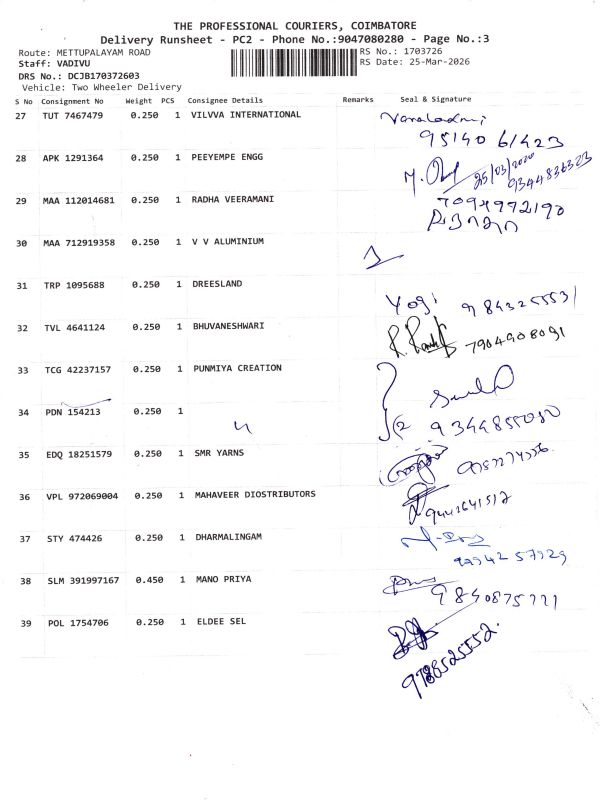 THE PROFESSIONAL COURIERS, COIMBATORE
Delivery Runsheet - PC2 - Phone No.:9047080280 - Page No.:3
Route: METTUPALAYAM ROAD
RS No.: 1703726
Staff: VADIVU
RS Date: 25-Mar-2026
DRS No.: DCJB170372603
Vehicle: Two Wheeler Delivery
S No Consignment No Weight PCS Consignee Details Remarks Seal & Signature
27 TUT 7467479 0.250 1 VILVVA INTERNATIONAL
95140 61423
28 APK 1291364 0.250 1 PEEYEMPE ENGG
9344836323
29 MAA 112014681 0.250 1 RADHA VEERAMANI
7094972190
30 MAA 712919358 0.250 1 V V ALUMINIUM
31 TRP 1095688 0.250 1 DREESLAND
Yogi 9843255531
32 TVL 4641124 0.250 1 BHUVANESHWARI
7904908091
33 TCG 42237157 0.250 1 PUNMIYA CREATION
34 PDN 154213 0.250 1
9344855080
35 EDQ 18251579 0.250 1 SMR YARNS
36 VPL 972069004 0.250 1 MAHAVEER DIOSTRIBUTORS
9442641517
37 STY 474426 0.250 1 DHARMALINGAM
38 SLM 391997167 0.450 1 MANO PRIYA
9840875721
39 POL 1754706 0.250 1 ELDEE SEL
9788525552.